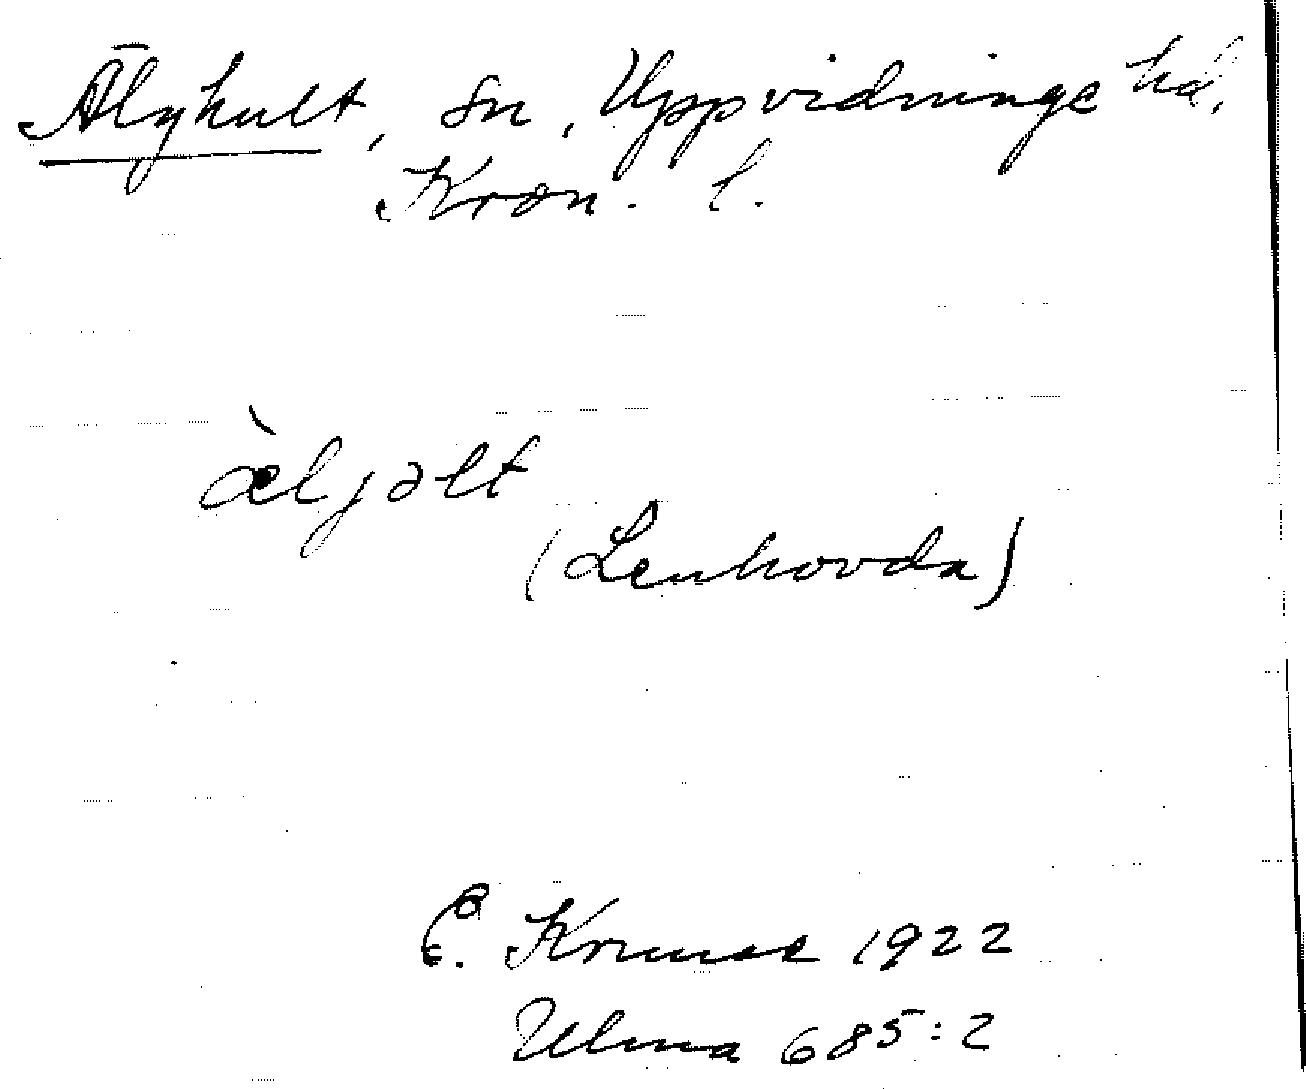 Älghult, sn, Uppvidinge hd,
Kron. l.
æ̀ljəlt
(Lenhovda)
E. Kruuse 1922
Ulma 685:2